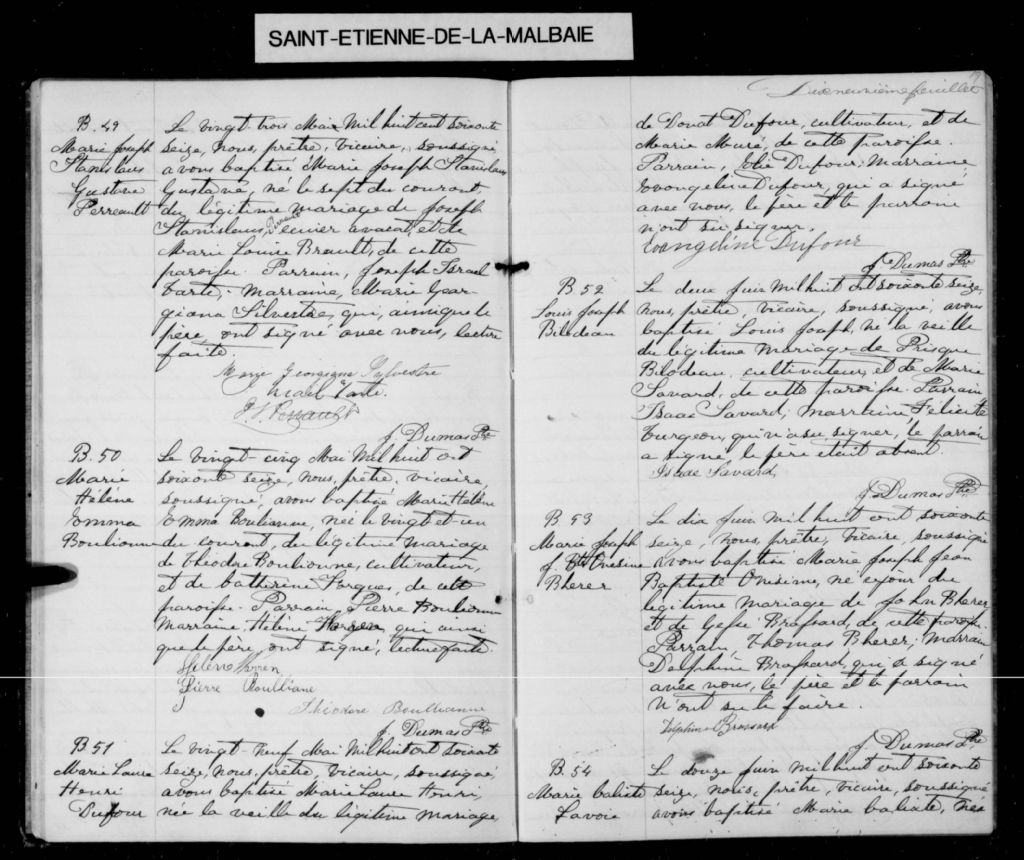 SAINT-ETIENNE-DE-LA-MALBAIE
B. 49
Marie Joseph
Stanislaus
Gustave
Perreault
Le vingt trois Mai Mil huit cent soixante
seize, nous, prêtre, vicaire, soussigné
avons baptisé Marie Joseph Stanislaus
Gustave, né le sept du courant,
du légitime mariage de Joseph
Stanislaus Perrault écuier avocat, et de
Marie Louise Brault, de cette
paroisse. Parrain, Joseph Israel
Tarte. Marraine, Marie Geor-
giana Silvestre, qui, ainsi que le
père, ont signé avec nous, lecture
faite.
Marie Georgiana Sylvestre
Israël Tarte.
J. S. Perrault
J. Dumas Ptre
B. 50
Marie
Hélène
Emma
Boulionne
Le vingt-cinq Mai Mil huit cent
soixante seize, nous, prêtre, vicaire,
soussigné, avons baptisé Marie Hélène
Emma Boulionne, née le vingt-et-un
du courant, du légitime mariage
de Théodore Boulionne, cultivateur,
et de Catherine Forgues, de cette
paroisse. Parrain, Pierre Boulionne
Marraine, Hélène qui ainsi
que le père, ont signé, lecture faite.
Hélène
Pierre Boulliane
Théodore Boullianne
J. Dumas Ptre
B. 51
Marie Laure
Henri
Dufour
Le vingt-neuf Mai Mil huit cent soixante
seize, nous, prêtre, vicaire, soussigné,
avons baptisé Marie Laure Henri,
née la veille du légitime mariage
Dix neuvième feuillet
de Donat Dufour, cultivateur, et de
Marie Mure, de cette paroisse.
Parrain, Elie Dufour; Marraine
Evangeline Dufour, qui a signé
avec nous, le père et le parrain
n'ont su signer.
Evangéline Dufour
J. Dumas Ptre
B 52
Louis Joseph
Bilodeau
Le deux Juin Mil huit cent soixante seize,
nous, prêtre, vicaire, soussigné, avons
baptisé Louis Joseph, né la veille
du légitime mariage de Prisque
Bilodeau, cultivateur, et de Marie
Savard, de cette paroisse. Parrain
Isaac Savard; marraine, Félicité
Turgeon, qui n'a su signer, le parrain
a signé, le père étant absent.
Isaac Savard,
J. Dumas Ptre
B 53
Marie Joseph
J. Bte Onesime
Bherer
Le dix Juin Mil huit cent soixante
seize, nous, prêtre, vicaire, soussigné
avons baptisé Marie Joseph Jean
Baptiste Onésime, né ce jour du
légitime mariage de John Bherer
et de Brassard, de cette paroisse.
Parrain, Thomas Bherer; Marraine
Delphine Brassard, qui a signé
avec nous, le père et le parrain
n'ont su le faire.
Delphine Brassard
J. Dumas Ptre
B. 54
Marie Calixte
Lavoie
Le douze Juin Mil huit cent soixante
seize, nous, prêtre, vicaire, soussigné
avons baptisé Marie Calixte, née